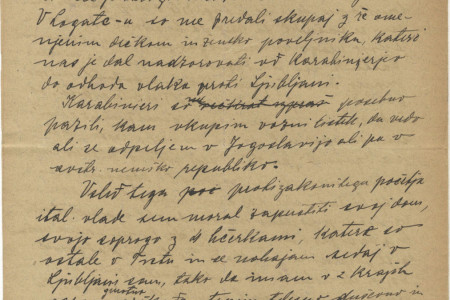 V Logatc-u so me predali skupaj z že ome-
njenim dečkom in žensko poveljniku, kateri
nas je dal nadzorovati od Karabinjerjev
do odhoda vlaka proti Ljubljani.
Karabinjeri so posebno
pazili, kam vkupim vozni listek, da vedo
ali se odpeljem v Jugoslavijo ali pa v
avstr. nemško republiko.
Vsled tega protizakonitega početja
ital. vlade sem moral zapustiti svoj dom,
svojo soprogo z 4 hčerkami, katere so
ostale v Trstu in se nahajam sedaj v
Ljubljani sam, tako da imam v 2 krajih